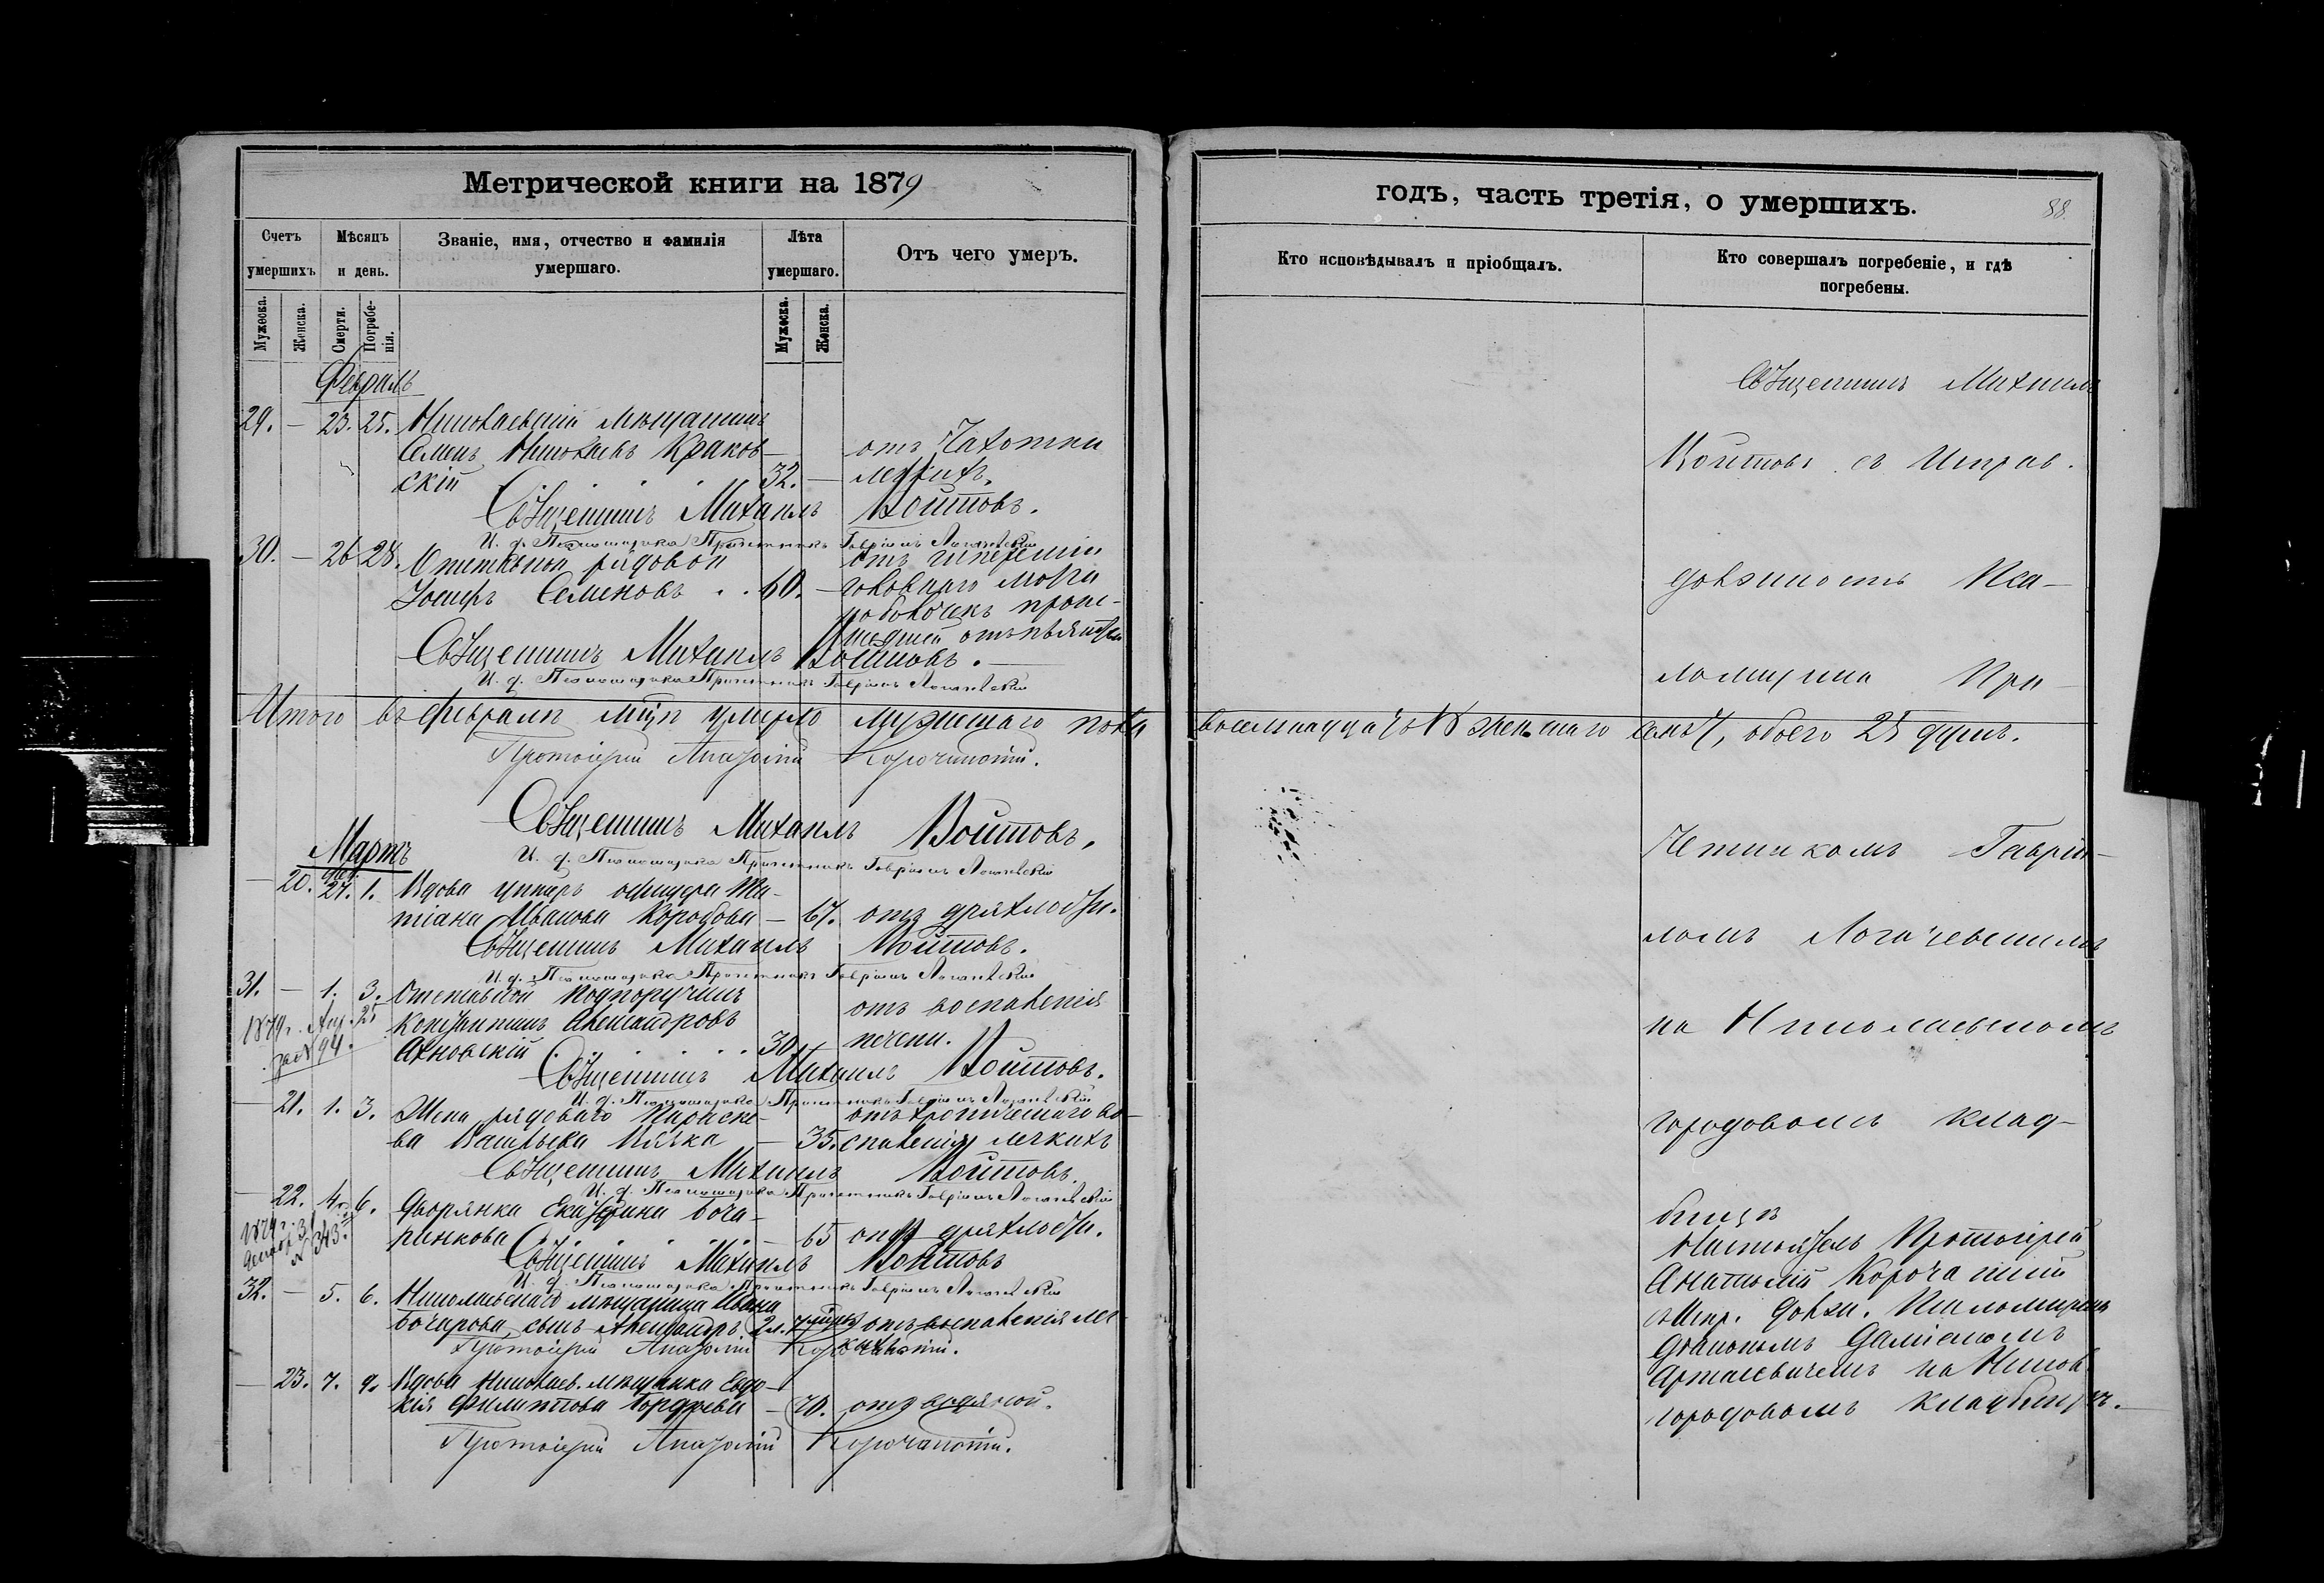 Метрической книги на 1879
Счетъ умершихъ
Мѣсяцъ и день.
Званіе, имя, отчество и фамилія умершаго.
Лѣта умершаго.
Отъ чего умеръ.
Мужеска.
Женска.
Смерти.
Погребенія.
Мужеска.
Женска.
Февраль
29. — 23. 25. Николаевскій мѣщанинъ
Семенъ Николаевъ Краков-
отъ Чахотки
скій 32. — легкихъ.
Священникъ Михаилъ Войтовъ.
И. д. Псаломщика Причетникъ Гавріилъ Логачевскій
30. — 26 28. Отставной рядовой
отъ гипереміи
Іосифъ Семеновъ . . 60. — головнаго мозга
Священникъ Михаилъ Войтовъ.
И. д. Псаломщика Причетникъ Гавріилъ Логачевскій
Итого въ февралѣ мцѣ умерло мужескаго пола
Протоіерей Анатолій Корочанскій.
Священникъ Михаилъ Войтовъ.
И. д. Псаломщика Причетникъ Гавріилъ Логачевскій
Мартъ
— 20. фев. 27. 1. Вдова унтеръ офицера Та-
тіана Иванова Коробова — 67. отъ дряхлости.
Священникъ Михаилъ Войтовъ.
И. д. Псаломщика Причетникъ Гавріилъ Логачевскій
31. — 1. 3. Отставной Подпоручикъ
отъ воспаленія
1879 г. Апр. 25
за № 94.
Константинъ Александровъ
Ахновскій . . . . 30. печени.
Священникъ Михаилъ Войтовъ.
И. д. Псаломщика Причетникъ Гавріилъ Логачевскій
— 21. 1. 3. Жена рядоваго Параске-
отъ хроническаго во-
ва Васильева — 35. спаленія легкихъ
Священникъ Михаилъ Войтовъ.
И. д. Псаломщика Причетникъ Гавріилъ Логачевскій
— 22. 4. 6. Дворянка Екатерина Боча-
1879 г.
Декабр. 31
№ 343.
ринкова . . . — 65 отъ дряхлости.
Священникъ Михаилъ Войтовъ
И. д. Псаломщика Причетникъ Гавріилъ Логачевскій
32. — 5. 6. Николаевскаго мѣщанина Ивана
Бочарова, сынъ Александръ. 2 л. отъ воспаленія лег-
кихъ.
Протоіерей Анатолій Корочанскій.
— 23. 7. 9. Вдова Николаев. мѣщанка Евдо-
кія Филиппова Гордѣева — 70. отъ водяной.
Протоіерей Анатолій Корочанскій.
годъ, часть третія, о умершихъ.
88.
Кто исповѣдывалъ и пріобщалъ.
Кто совершалъ погребеніе, и гдѣ погребены.
Священникъ Михаилъ
Войтовъ съ Исправ.
должность Пса-
ломщика При-
восемнадцать 18 женскаго семь 7, обоего 25 душъ.
четникомъ Гаврі-
ломъ Логачевскимъ
на Николаевскомъ
городовомъ клад-
бищѣ
Настоятель Протоіерей
Анатолій Корочанскій
съ Испр. Должн. Псаломщика
Діакономъ Даміаномъ
Арташевичемъ на Никол.
городовомъ кладбищѣ.